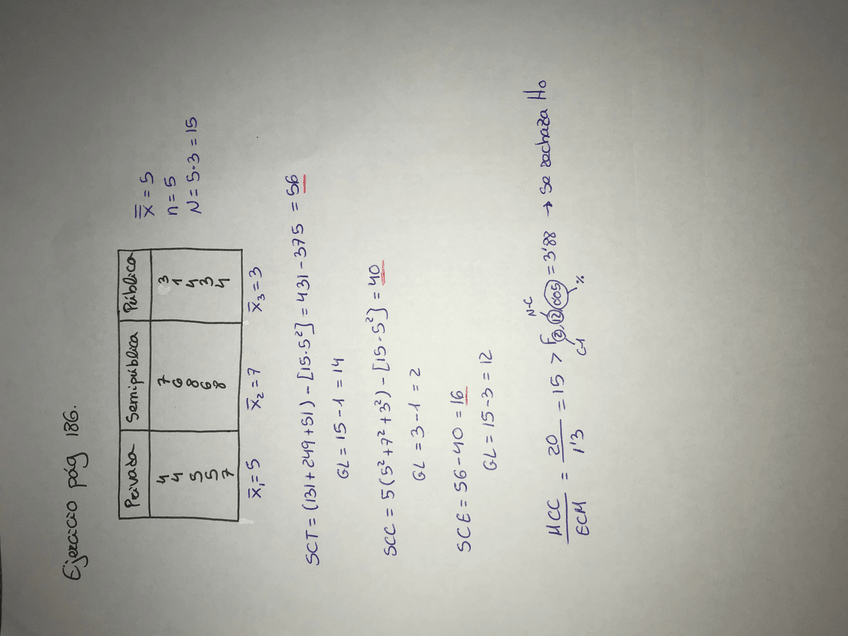 Ejercicio pág 186.
Privada Semipública Pública
4 7 3
4 6 1
5 8 4
5 6 3
7 8 4
X̄₁=5 X̄₂=7 X̄₃=3
X̿ = 5
n = 5
N = 5·3 = 15
SCT = (131+249+51) - [15·5²] = 431 - 375 = 56
GL = 15 - 1 = 14
SCC = 5(5²+7²+3²) - [15·5²] = 40
GL = 3 - 1 = 2
SCE = 56 - 40 = 16
GL = 15 - 3 = 12
N-C
MCC/ECM = 20/1'3 = 15 > F 2, 12, 0'05 = 3'88 → Se rechaza H₀
C-1 %